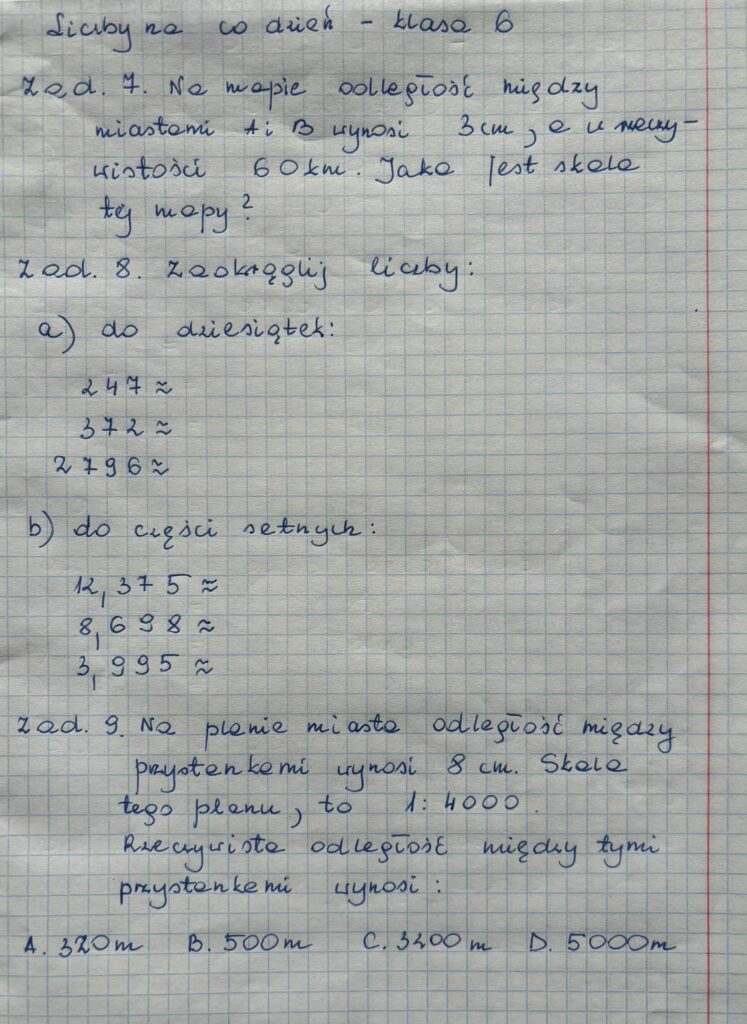 Liczby na co dzień - klasa 6
Zad. 7. Na mapie odległość między
miastami A i B wynosi 3 cm, a w rzeczy-
wistości 60 km. Jaka jest skala
tej mapy?
Zad. 8. Zaokrąglij liczby:
a) do dziesiątek:
247 ≈
372 ≈
2796 ≈
b) do części setnych:
12,375 ≈
8,698 ≈
3,995 ≈
Zad. 9. Na planie miasta odległość między
przystankami wynosi 8 cm. Skala
tego planu, to 1:4000.
Rzeczywista odległość między tymi
przystankami wynosi:
A. 320 m B. 500 m C. 3200 m D. 5000 m